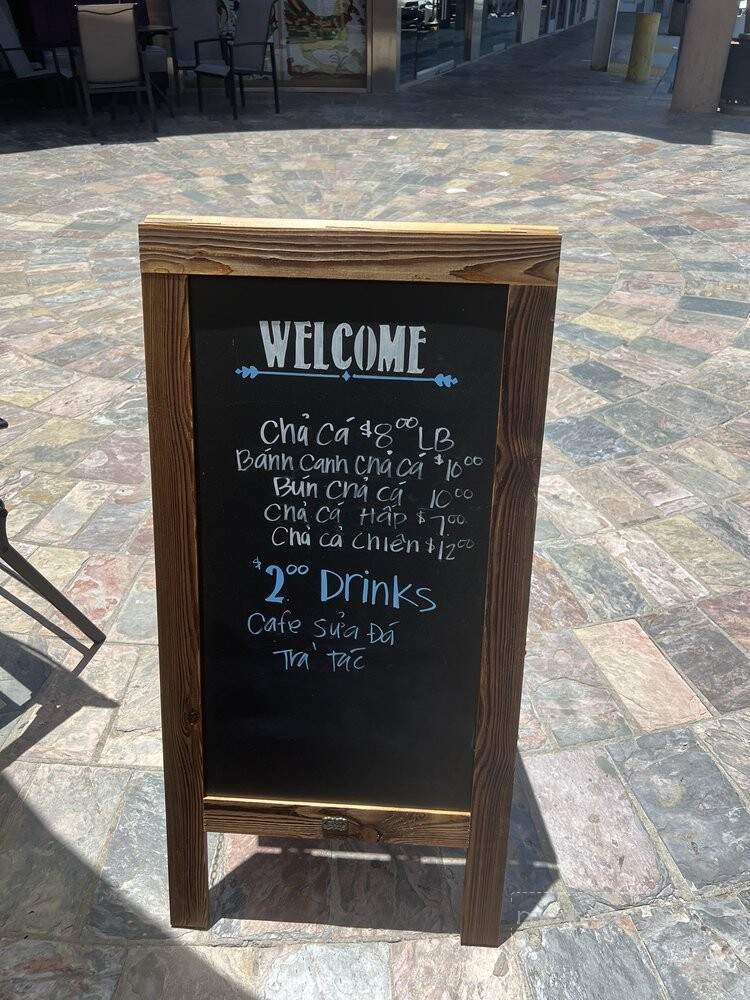 WELCOME
Chả Cá $8.00 LB
Bánh Canh Chả Cá $10.00
Bún Chả Cá 10.00
Chả Cá Hấp $7.00
Chả cả chiên $12.00
$2.00 Drinks
Cafe Sửa Đá
Trà Tắc